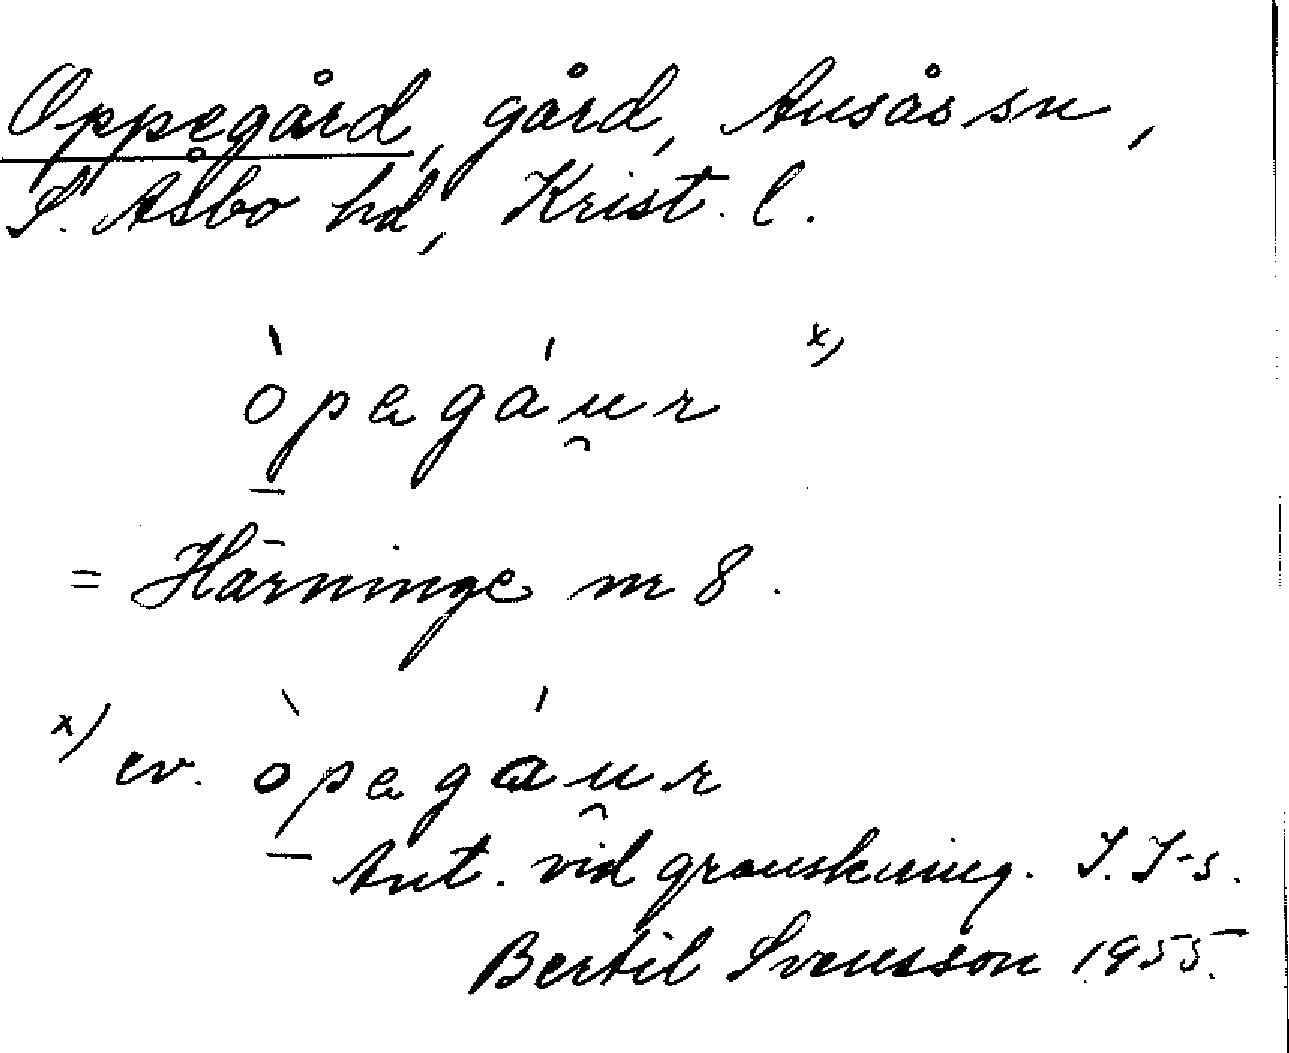 Oppegård, gård, Ausås sn,
S. Åsbo hd, Krist. l.
òpegáu̯r x)
= Härninge nr 8.
x) ev. òpegáu̯r
Ant. vid granskning. I. I-s.
Bertil Svensson 1955.